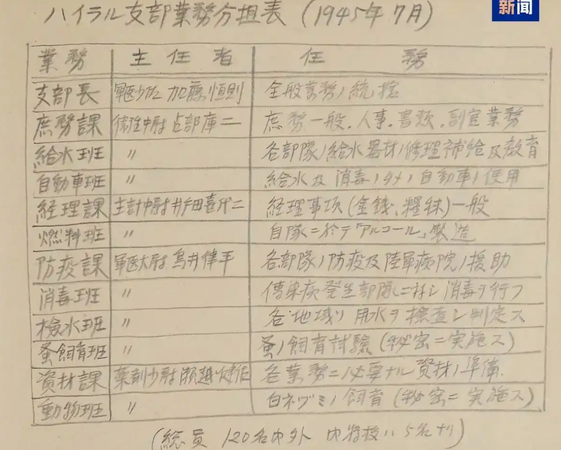 新闻
ハイラル支部業務分担表（1945年7月）
業務 主任者 任務
支部長 軍医少佐 加藤恒則 全般業務ノ統括
庶務課 衛生中尉 占部庫二 庶務一般、人事、書政、副官業務
給水班 〃 各部隊ノ給水器材ノ修理補給及教育
自動車班 〃 給水及消毒ノタメノ自動車ノ使用
経理課 主計中尉 井田喜代二 経理事項（金銭、糧秣）一般
燃料班 〃 自隊ニ於テ「アルコール」製造
防疫課 軍医大尉 鳥井偉平 各部隊ノ防疫及陸軍病院ノ援助
消毒班 〃 傳染病発生部隊ニ 消毒ヲ行フ
検水班 〃 各地域ノ用水ヲ検査シ判定ス
蚤飼育班 〃 蚤ノ飼育試験（秘密ニ実施ス）
資材課 薬剤少尉 各業務ニ必要ナル資材ノ準備
動物班 〃 白ネヅミノ飼育（秘密ニ実施ス）
（総員 120名内外 内将校ハ5名ナリ）